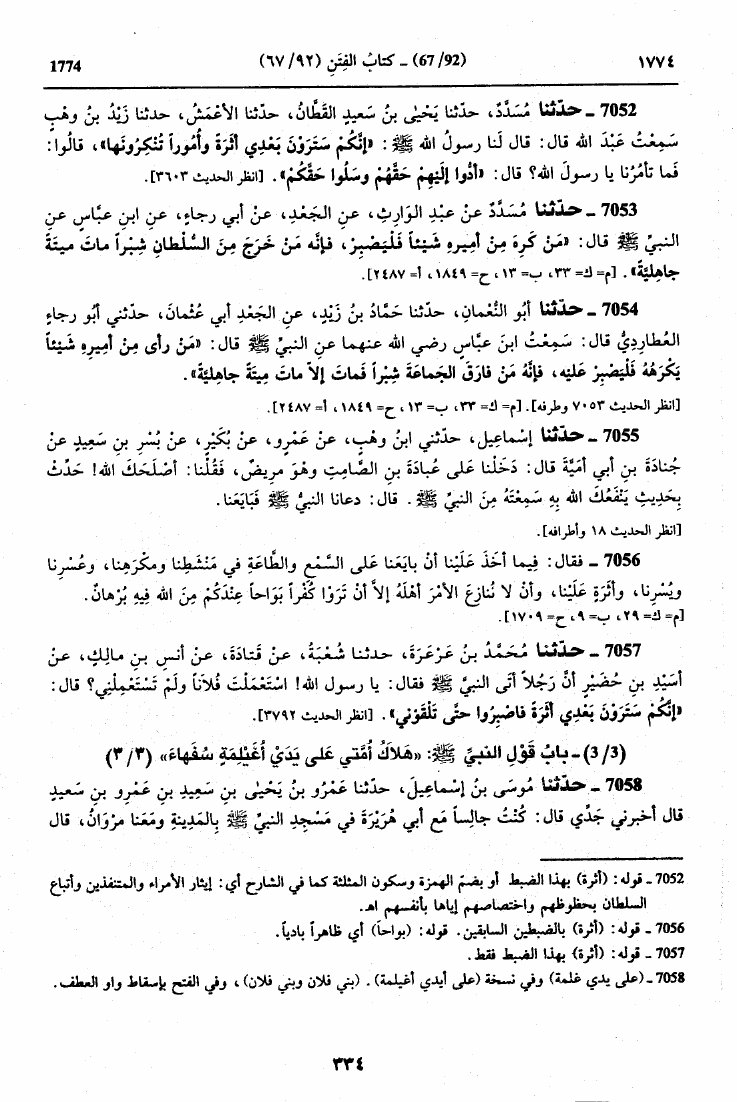 ١٧٧٤ (67/92) ـ كتابُ الفِتَنِ (٦٧/٩٢) 1774
7052 ـ حدّثنا مُسَدَّدٌ، حدّثنا يَحْيٰى بنُ سَعيدٍ القَطَّانُ، حدّثنا الأعْمَشُ، حدثنا زَيْدُ بنُ وهْبٍ
سَمِعْتُ عَبْدَ الله قال: قال لَنا رسولُ الله ﷺ: «إنَّكُمْ سَتَرَوْنَ بَعْدِي أثَرَةً وأُمُوراً تُنْكِرُونَها»، قالُوا:
فَما تأمُرُنا يا رسولَ الله؟ قال: «أدُّوا إلَيْهِمْ حَقَّهُمْ وسَلُوا حَقَّكُمْ». [انظر الحديث ٣٦٠٣].
7053 ـ حدّثنا مُسَدَّدٌ عنْ عبْدِ الوَارِثِ، عنِ الجَعْدِ، عنْ أبي رجاءٍ، عنِ ابنِ عبَّاسٍ عنِ
النبيِّ ﷺ قال: «مَنْ كَرِهَ مِنْ أمِيرِهِ شَيْئاً فَلْيَصْبِرْ، فإنَّه مَنْ خَرَجَ مِنَ السُّلْطانِ شِبْراً ماتَ مِيتَةً
جاهِليَّةً». [م= ك= ٣٣، ب= ١٣، ح= ١٨٤٩، أ= ٢٤٨٧].
7054 ـ حدّثنا أبُو النُّعْمانِ، حدّثنا حَمَّادُ بنُ زَيْدٍ، عنِ الجَعْدِ أبي عُثْمانَ، حدّثني أبُو رجاءٍ
العُطارِديُّ قال: سَمِعْتُ ابنَ عبَّاسٍ رضي الله عنهما عنِ النبيِّ ﷺ قال: «مَنْ رأى مِنْ أمِيرِهِ شَيْئاً
يَكْرَهُهُ فَلْيَصْبِرْ علَيْه، فإنَّهُ مَنْ فارَقَ الجَماعَةَ شِبْراً فَماتَ إلاَّ ماتَ مِيتَةً جاهِليَّةً».
[انظر الحديث ٧٠٥٣ وطرفه]. [م= ك= ٣٣، ب= ١٣، ح= ١٨٤٩، أ= ٢٤٨٧].
7055 ـ حدّثنا إسْماعِيل، حدّثني ابنُ وهْبٍ، عنْ عَمْرٍو، عنْ بُكَيْرٍ، عنْ بُسْرِ بنِ سَعِيدٍ عنْ
جُنادَةَ بنِ أبي أُمَيَّةَ قال: دَخَلْنا عَلى عُبادَةَ بنِ الصَّامِتِ وهْوَ مرِيضٌ، فَقُلْنا: أصْلَحَكَ الله! حَدِّثْ
بِحَديثٍ يَنْفَعُكَ الله بِهِ سَمِعْتَهُ مِنَ النبيِّ ﷺ. قال: دعانا النبيُّ ﷺ فَبَايَعَنا.
[انظر الحديث ١٨ وأطرافه].
7056 ـ فقال: فِيما أخَذَ عَلَيْنا أنْ بايَعَنا عَلى السَّمْعِ والطَّاعَةِ في مَنْشَطِنا ومَكْرَهِنا، وعُسْرِنا
ويُسْرِنا، وأثَرَةٍ عَلَيْنا، وأنْ لا نُنازِعَ الأمْرَ أهْلَهُ إلاَّ أنْ تَرَوْا كُفْراً بَوَاحاً عِنْدَكُمْ مِنَ الله فِيهِ بُرْهانٌ.
[م= ك= ٢٩، ب= ٩، ح= ١٧٠٩].
7057 ـ حدّثنا مُحَمَّدُ بنُ عَرْعَرَةَ، حدثنا شُعْبَةُ، عنْ قَتادَةَ، عنْ أنَسِ بنِ مالِكٍ، عنْ
أُسَيْدِ بنِ حُضَيْرٍ أنَّ رَجُلاً أتَى النبيَّ ﷺ فقال: يا رسول الله! اسْتَعْمَلْتَ فُلاَناً ولَمْ تَسْتَعْمِلْنِي؟ قال:
«إنَّكُمْ سَتَرَوْنَ بَعْدِي أثَرَةً فاصْبِرُوا حتَّى تَلْقَوْنِي». [انظر الحديث ٣٧٩٢].
(3/3) ـ بابُ قَوْلِ النبيِّ ﷺ: «هَلاَكُ أُمَّتي عَلى يَدَيْ أُغَيْلِمَةٍ سُفَهاءَ» (٣/٣)
7058 ـ حدّثنا مُوسَى بنُ إسْماعِيلَ، حدّثنا عَمْرُو بنُ يَحْيٰى بنِ سَعِيدِ بنِ عَمْرِو بنِ سَعيدٍ
قال أخبرني جَدِّي قال: كُنْتُ جالِساً مَع أبي هُرَيْرَةَ في مَسْجِدِ النبيِّ ﷺ بالمَدِينةِ ومَعَنا مرْوَانُ، قال
7052 ـ قوله: (أثرة) بهذا الضبط أو بضمّ الهمزة وسكون المثلثة كما في الشارح أي: إيثار الأمراء والمتنفذين وأتباع
السلطان بحظوظهم واختصاصهم إياها بأنفسهم اهـ.
7056 ـ قوله: (أثرة) بالضبطين السابقين. قوله: (بواحاً) أي ظاهراً بادياً.
7057 ـ قوله: (أثرة) بهذا الضبط فقط.
7058 ـ (على يدي غلمة) وفي نسخة (على أيدي أغيلمة). (بني فلان وبني فلان)، وفي الفتح بإسقاط واو العطف.
٣٣٤